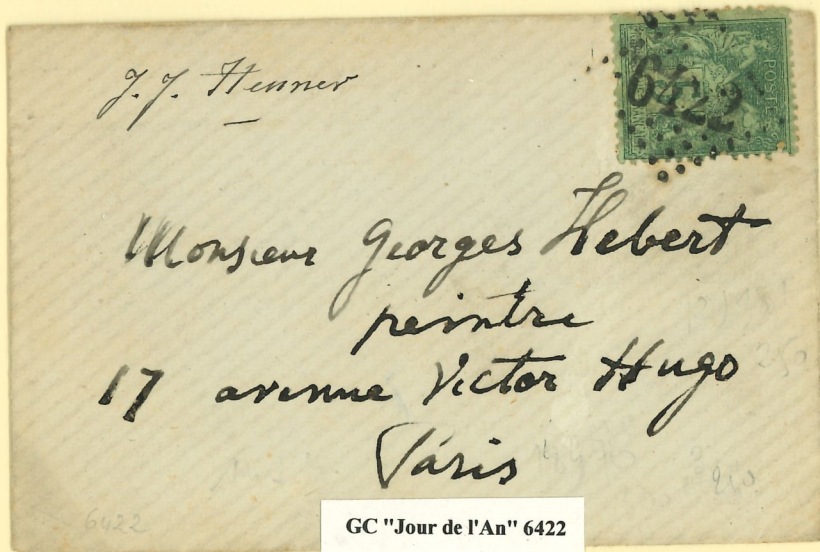 J. J. Henner
POSTE
6422
Monsieur Georges Hebert
peintre
17 avenue Victor Hugo
Paris
250
6422
GC "Jour de l'An" 6422